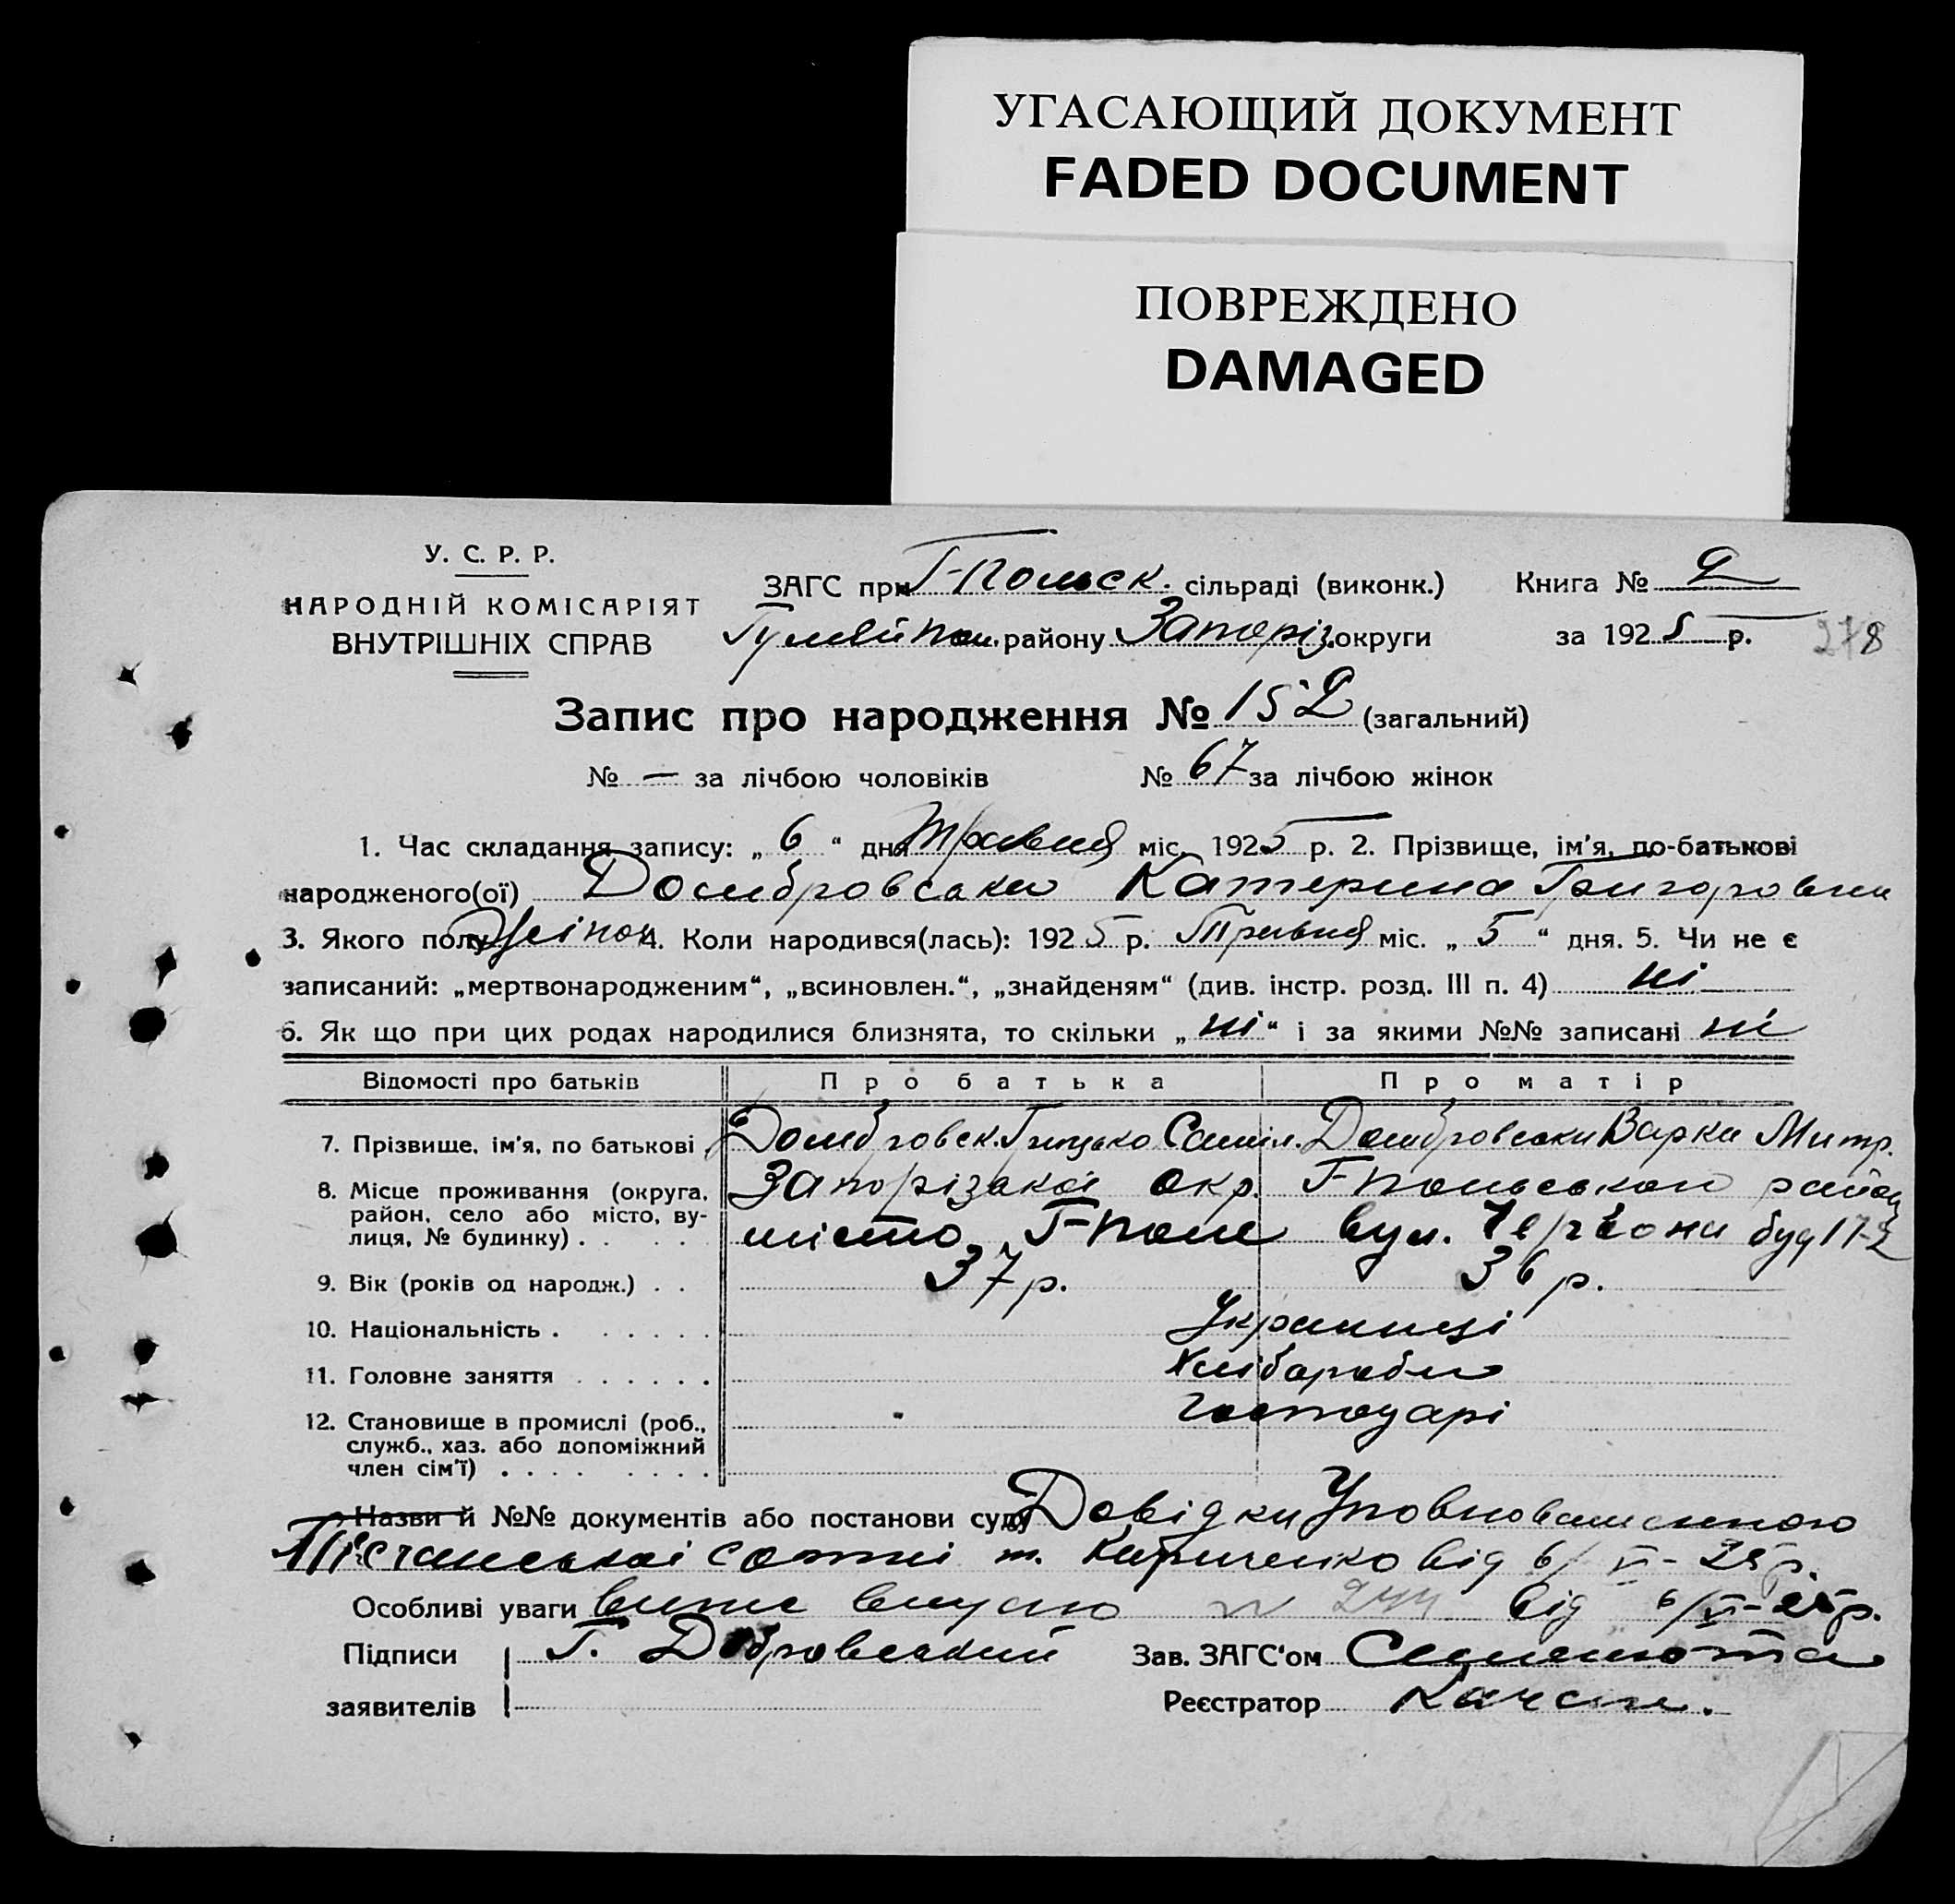 УГАСАЮЩИЙ ДОКУМЕНТ
FADED DOCUMENT
ПОВРЕЖДЕНО
DAMAGED
У. С. Р. Р.
НАРОДНІЙ КОМІСАРІЯТ
ВНУТРІШНІХ СПРАВ
ЗАГС при Г-Польск. сільраді (виконк.)
Гуляйпол. району Запоріз. округи
Книга № 2
за 1925 р.
278
Запис про народження № 152 (загальний)
№ — за лічбою чоловіків № 67 за лічбою жінок
1. Час складання запису: „ 6 “ дня травня міс. 1925 р. 2. Прізвище, ім'я, по-батькові
народженого(ої) Домбровська Катерина Григоровна
3. Якого полу Жіноч 4. Коли народився(лась): 1925 р. Травня міс. „ 5 “ дня. 5. Чи не є
записаний: „мертвонародженим“, „всиновлен.“, „знайденям“ (див. інстр. розд. III п. 4) ні
6. Як що при цих родах народилися близнята, то скільки „ ні “ і за якими №№ записані ні
Відомості про батьків Про батька Про матір
7. Прізвище, ім'я, по батькові Домбровск. Грицько Саміл. Домбровська Варка Митр.
8. Місце проживання (округа, район, село або місто, вулиця, № будинку) . . Запорізакої окр. Г-Польського району
місто Г-Поле вул. Червона буд 17-2
9. Вік (років од народж.) . . 37 р. 36 р.
10. Національність . Українці
11. Головне заняття Хліборобы
12. Становище в промислі (роб., служб., хаз. або допоміжний член сім'ї) господарі
Назви й №№ документів або постанови суду Довідка Уповноваженного
Пісчанської сотні т. Кириченко від 6/V-25 р.
Особливі уваги від 6/V-25 р.
Підписи Г. Добровський Зав. ЗАГС'ом
заявителів Реєстратор